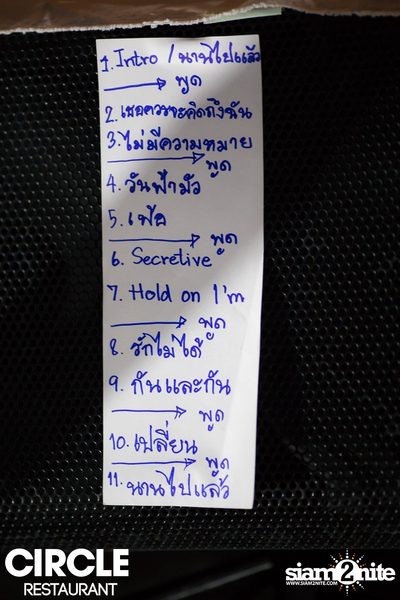 1. Intro / นานไปแล้ว
พูด
2. เธอควรจะคิดถึงฉัน
3. ไม่มีความหมาย
พูด
4. วันฟ้ามัว
5. เพ้อ
พูด
6. Secretive
7. Hold on I'm
พูด
8. รักไม่ได้
9. กันและกัน
พูด
10. เปลี่ยน
พูด
11. นานไปแล้ว
CIRCLE
RESTAURANT
siam2nite
WWW.SIAM2NITE.COM